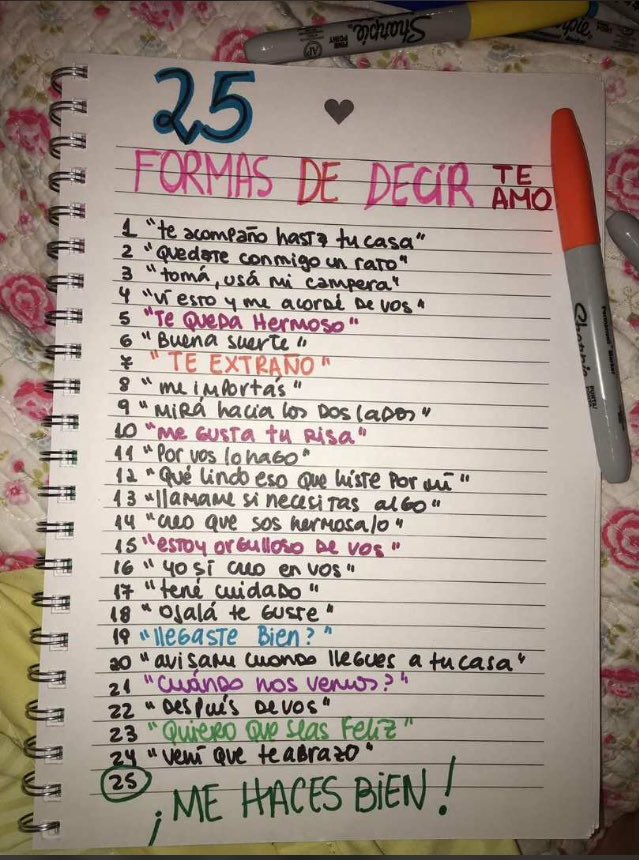 Sharpie
FINE POINT
AP
25
FORMAS DE DECIR TE AMO
1 "te acompaño hasta tu casa"
2 "Quedate conmigo un rato"
3 "tomá, usá mi campera"
4 "vi esto y me acordé de vos"
5 "Te Queda Hermoso"
6 "Buena suerte"
7 "TE EXTRAÑO"
8 "me importás"
9 "MIRÁ hacia los Dos lados"
10 "me gusta tu risa"
11 "Por vos lo hago"
12 "Qué lindo eso que histe por mí"
13 "llamame si necesitas algo"
14 "creo que sos hermosa/o"
15 "estoy orgulloso de vos"
16 "yo si creo en vos"
17 "tené cuidado"
18 "Ojalá te guste"
19 "llegaste Bien?"
20 "avisame cuando llegues a tu casa"
21 "Cuándo nos vemos?"
22 "Después de vos"
23 "Quiero que seas Feliz"
24 "vení que te abrazo"
25 ¡ME HACES BIEN!
Sharpie